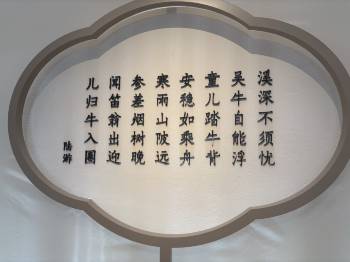 溪深不须忧
吴牛自能浮
童儿踏牛背
安稳如乘舟
寒雨山陂远
参差烟树晚
闻笛翁出迎
儿归牛入圈
陆游